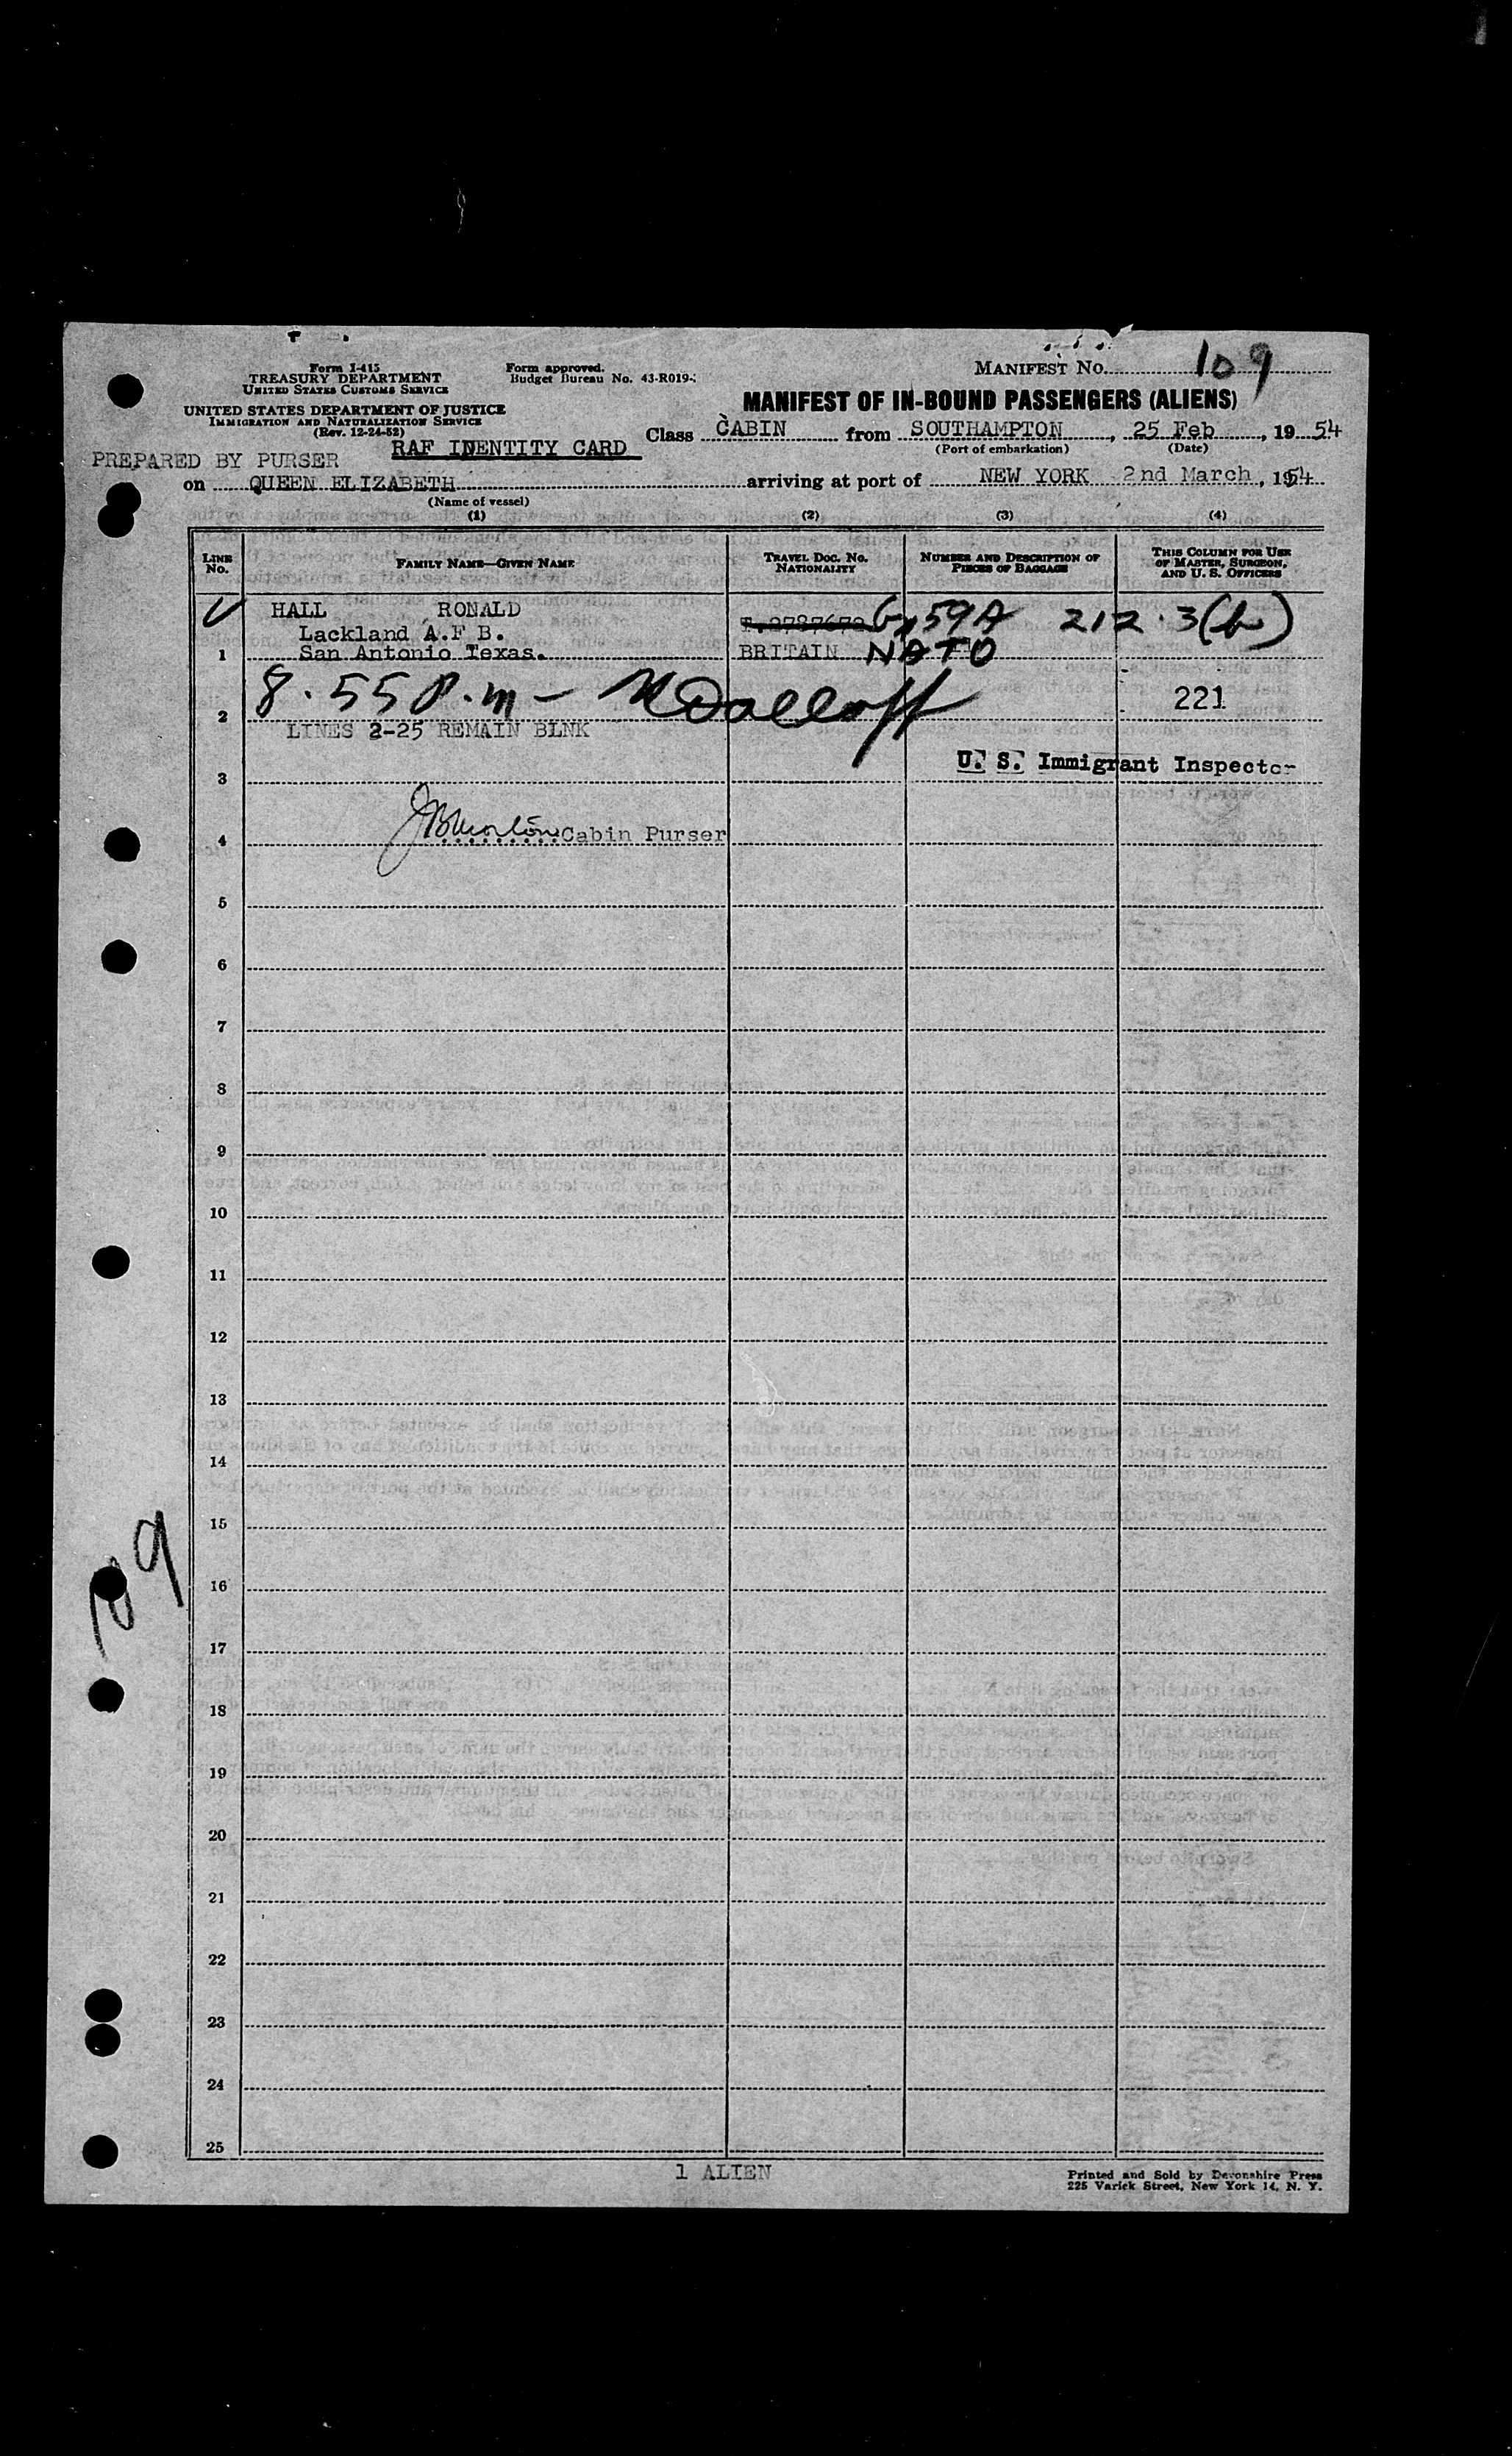 Form I-415
TREASURY DEPARTMENT
UNITED STATES CUSTOMS SERVICE
Form approved.
Budget Bureau No. 43-R019-
MANIFEST NO. 109
UNITED STATES DEPARTMENT OF JUSTICE
IMMIGRATION AND NATURALIZATION SERVICE
(Rev. 12-24-52)
MANIFEST OF IN-BOUND PASSENGERS (ALIENS)
RAF IDENTITY CARD
Class CABIN from SOUTHAMPTON, 25 Feb, 1954
(Port of embarkation) (Date)
PREPARED BY PURSER
on QUEEN ELIZABETH arriving at port of NEW YORK 2nd March, 1954
(Name of vessel)
(1) (2) (3) (4)
LINE No. FAMILY NAME—GIVEN NAME TRAVEL DOC. NO. NATIONALITY NUMBER AND DESCRIPTION OF PIECES OF BAGGAGE THIS COLUMN FOR USE OF MASTER, SURGEON, AND U. S. OFFICERS
HALL RONALD 59A 212.3(h)
Lackland A.F B.
1 San Antonio Texas. BRITAIN NATO
8.55 P.m - 221
2
LINES 2-25 REMAIN BLNK
U. S. Immigrant Inspector
3
4 Cabin Purser
5
6
7
8
9
10
11
12
13
14
15
109
16
17
18
19
20
21
22
23
24
25
1 ALIEN
Printed and Sold by Devonshire Press
225 Varick Street, New York 14, N. Y.